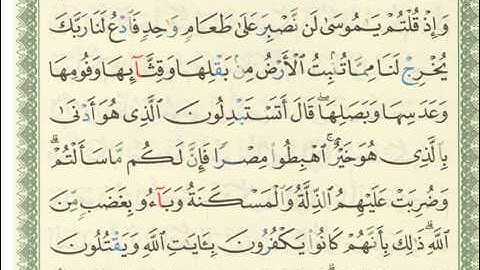 وَإِذْ قُلْتُمْ يَٰمُوسَىٰ لَن نَّصْبِرَ عَلَىٰ طَعَامٍ وَٰحِدٍ فَٱدْعُ لَنَا رَبَّكَ
يُخْرِجْ لَنَا مِمَّا تُنۢبِتُ ٱلْأَرْضُ مِنۢ بَقْلِهَا وَقِثَّآئِهَا وَفُومِهَا
وَعَدَسِهَا وَبَصَلِهَا ۖ قَالَ أَتَسْتَبْدِلُونَ ٱلَّذِى هُوَ أَدْنَىٰ
بِٱلَّذِى هُوَ خَيْرٌ ۚ ٱهْبِطُوا۟ مِصْرًا فَإِنَّ لَكُم مَّا سَأَلْتُمْ ۗ
وَضُرِبَتْ عَلَيْهِمُ ٱلذِّلَّةُ وَٱلْمَسْكَنَةُ وَبَآءُو بِغَضَبٍ مِّنَ
ٱللَّهِ ۗ ذَٰلِكَ بِأَنَّهُمْ كَانُوا۟ يَكْفُرُونَ بِـَٔايَٰتِ ٱللَّهِ وَيَقْتُلُونَ